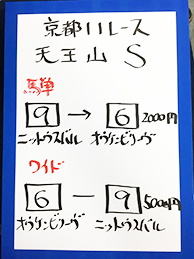 京都11レース
天王山 S
馬単
9 → 6 2000円
ニットウスバル オウケンビリーヴ
ワイド
6 — 9 5000円
オウケンビリーヴ ニットウスバル